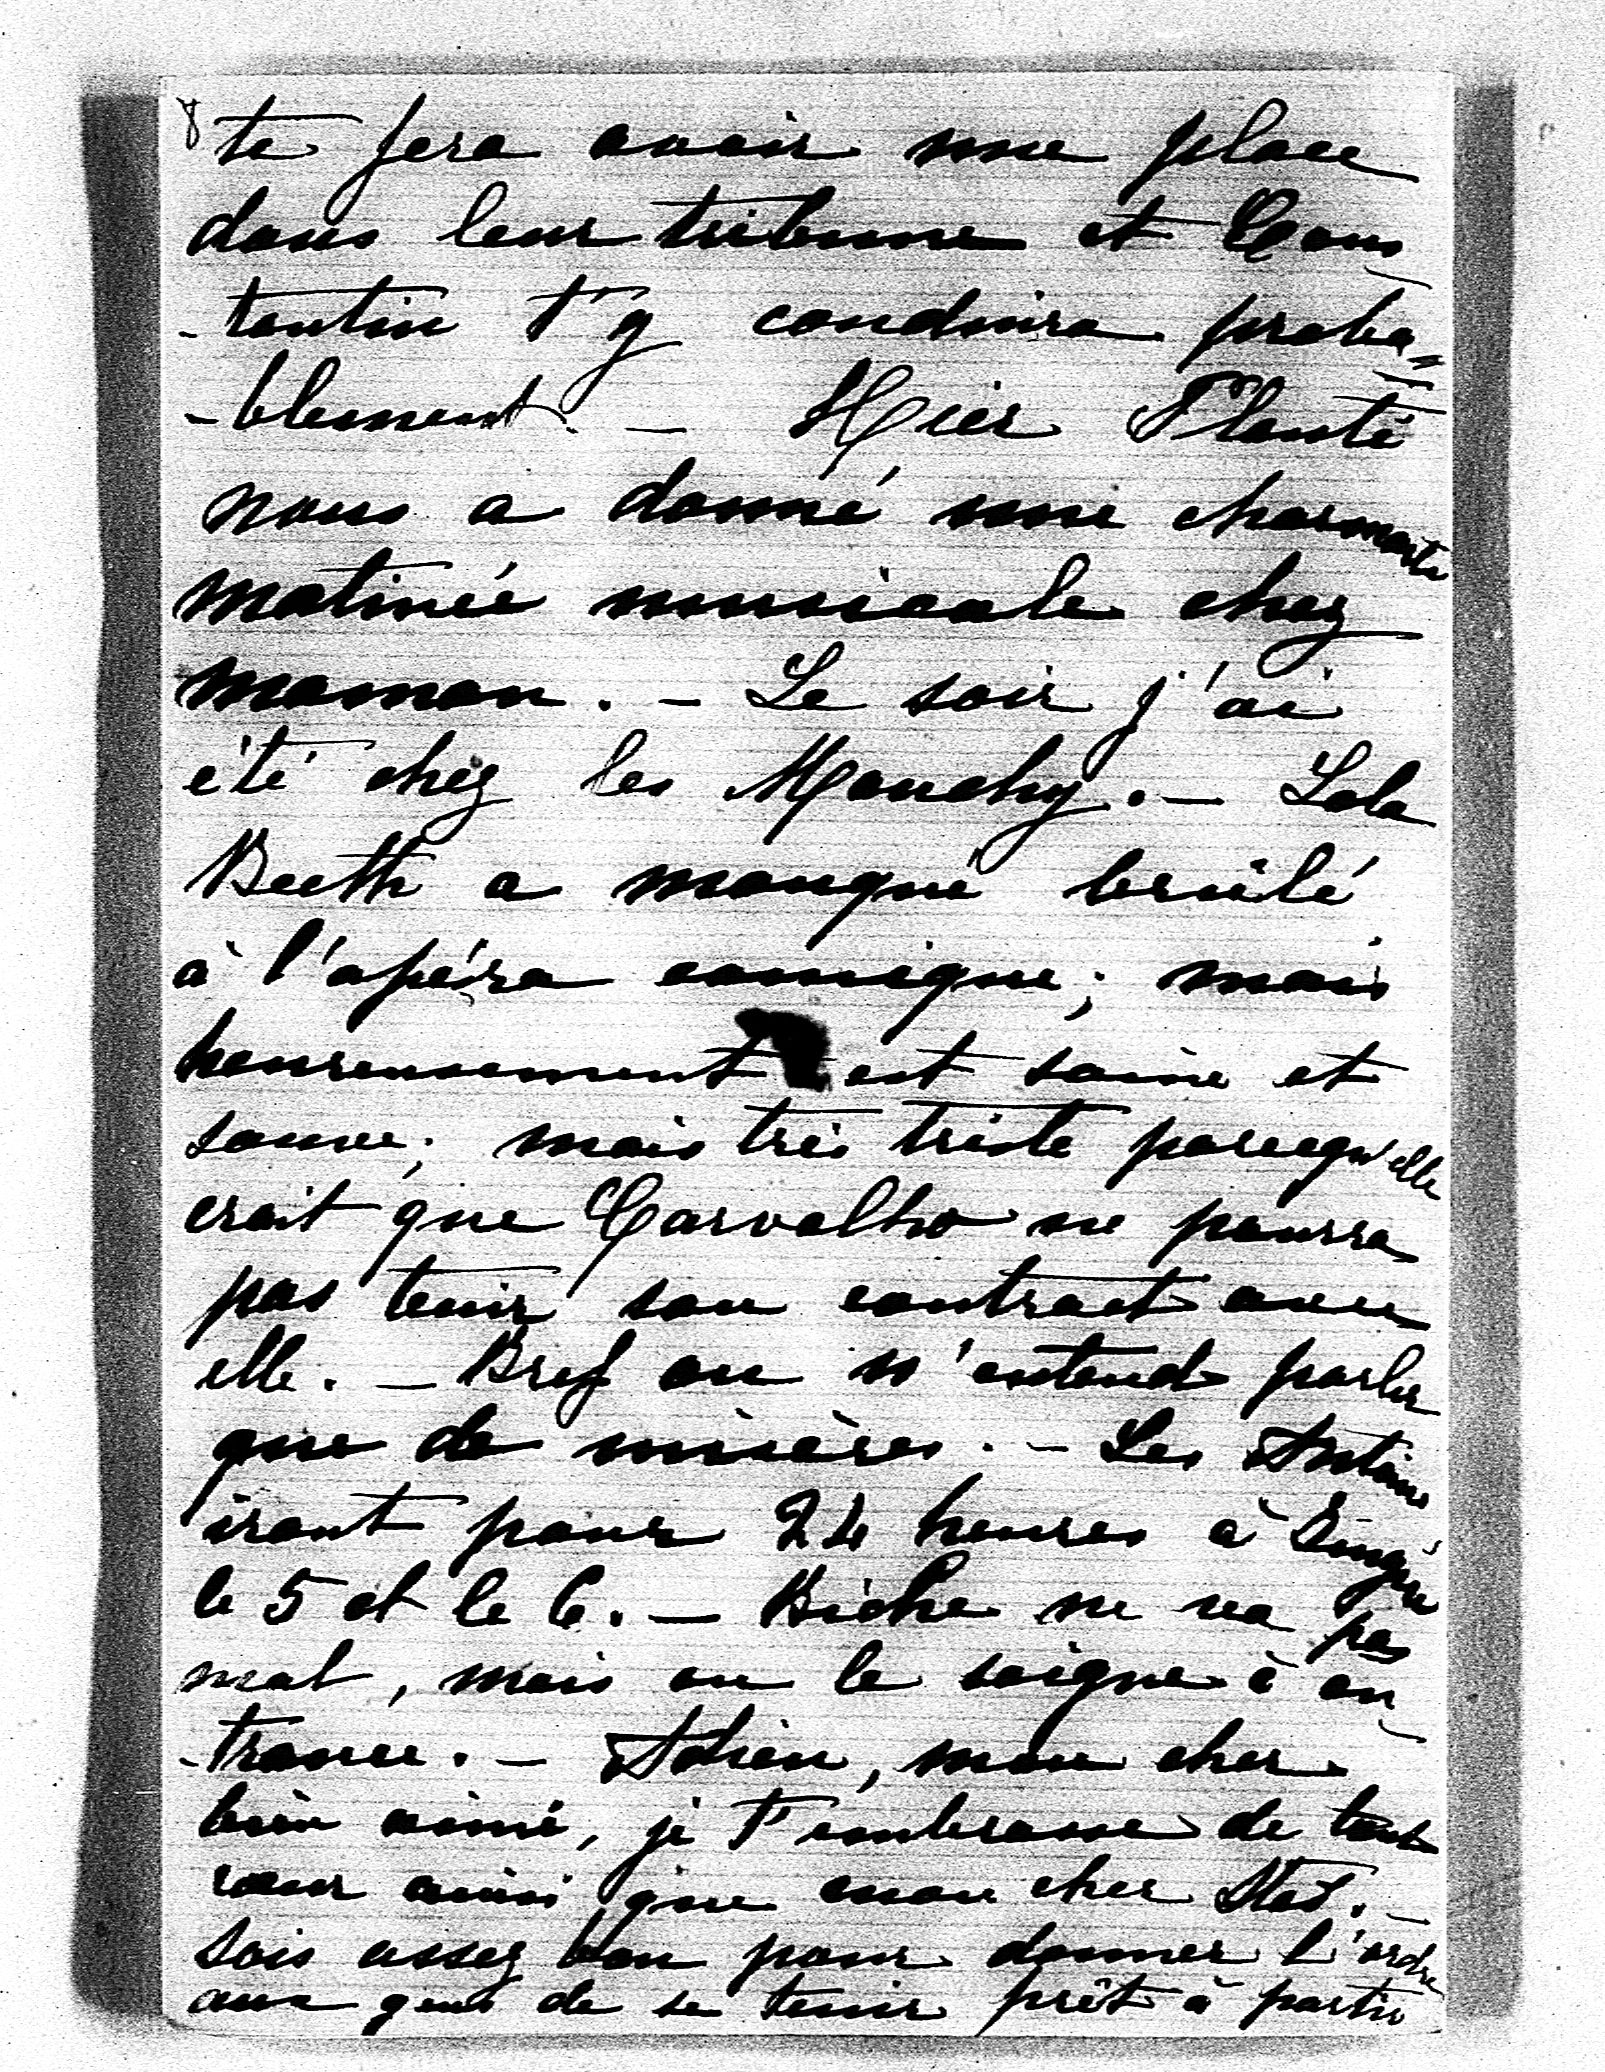 8 te fera avoir une place
dans leur tribune et Cons
-tantin t'y conduira proba=
-blement. — Hier Planté
nous a donné une charmante
matinée musicale chez
maman. — Le soir j'ai
été chez les Mouchy. — Lola
Beeth a manqué brûlé
à l'opéra comique; mais
heureusement est saine et
sauve; mais très triste parcequ'elle
crait que Carvalho ne pourra
pas tenir son contract avec
elle. — Bref on n'entend parler
que de misères. — Les Antoine
iront pour 24 heures à
le 5 et le 6. — Biche ne va pas
mal, mais on le soigne à ou
-trance. — Adieu, mon cher
bien aimé, je t'embrasse de tout
cœur ainsi que mon cher Stas. —
Sois assez bon pour donner l'ordre
aux gens de se tenir prêt à partir